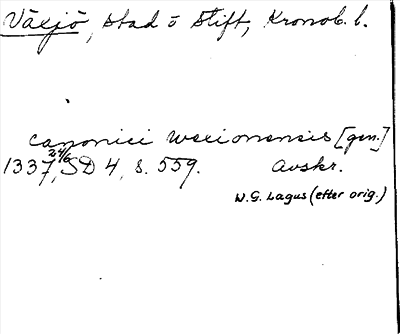 Växjö, stad o Stift, Kronob. l.
canonici wexionensis [gen.]
1337 24/6, SD 4, s. 559. Avskr.
W.G. Lagus (efter orig.)